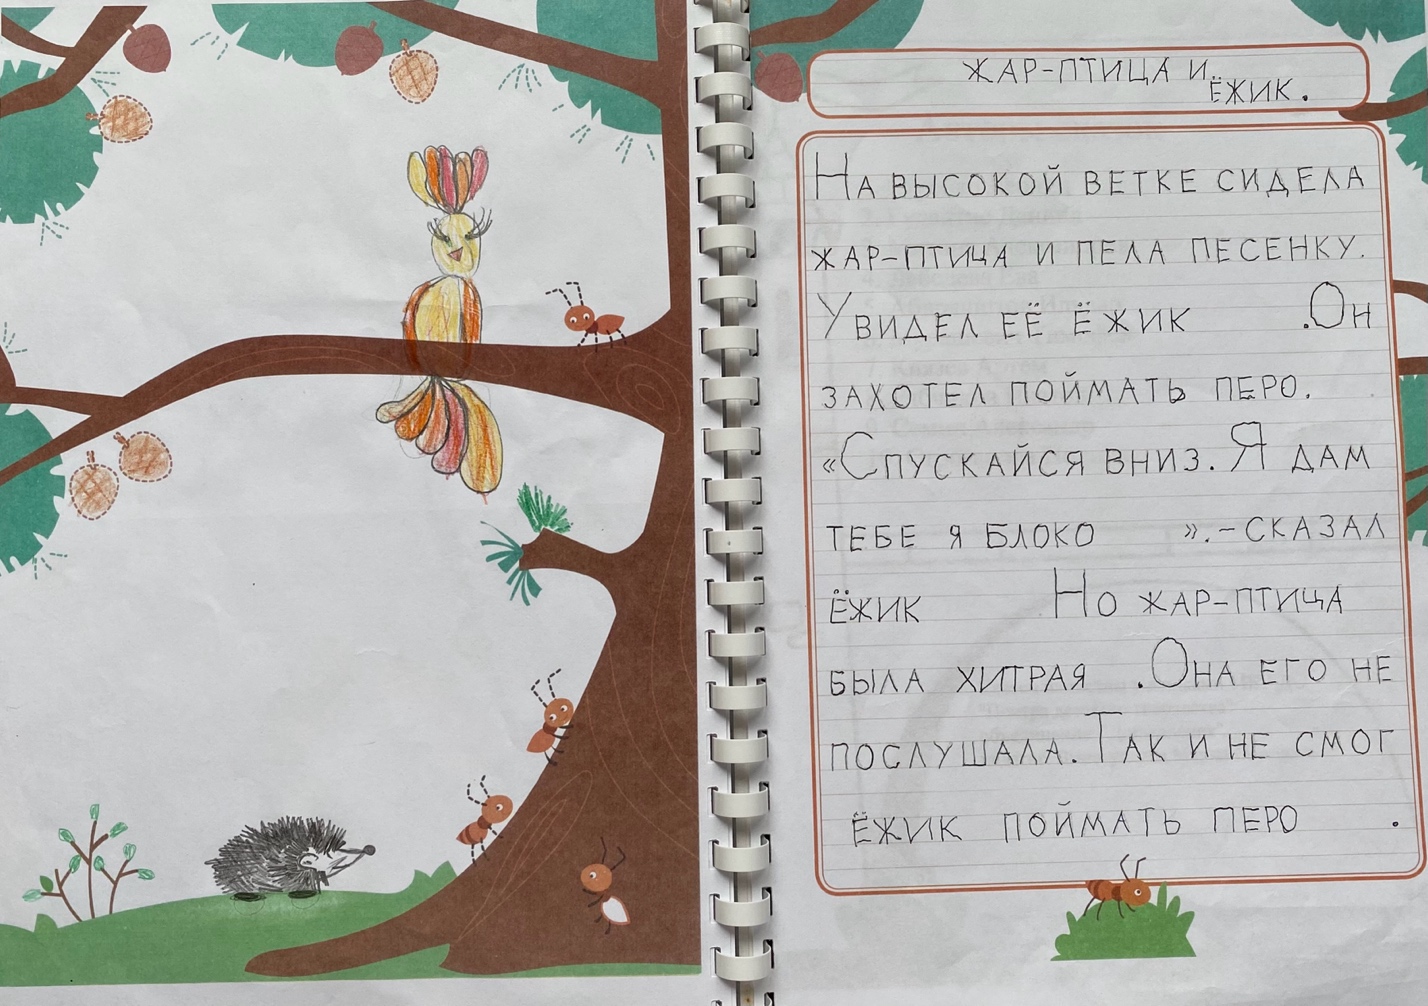 ЖАР-ПТИЦА И
ЁЖИК.
НА ВЫСОКОЙ ВЕТКЕ СИДЕЛА
ЖАР-ПТИЦА И ПЕЛА ПЕСЕНКУ.
УВИДЕЛ ЕЁ ЁЖИК .ОН
ЗАХОТЕЛ ПОЙМАТЬ ПЕРО.
«СПУСКАЙСЯ ВНИЗ. Я ДАМ
ТЕБЕ Я БЛОКО ».-СКАЗАЛ
ЁЖИК НО ЖАР-ПТИЦА
БЫЛА ХИТРАЯ .ОНА ЕГО НЕ
ПОСЛУШАЛА. ТАК И НЕ СМОГ
ЁЖИК ПОЙМАТЬ ПЕРО .